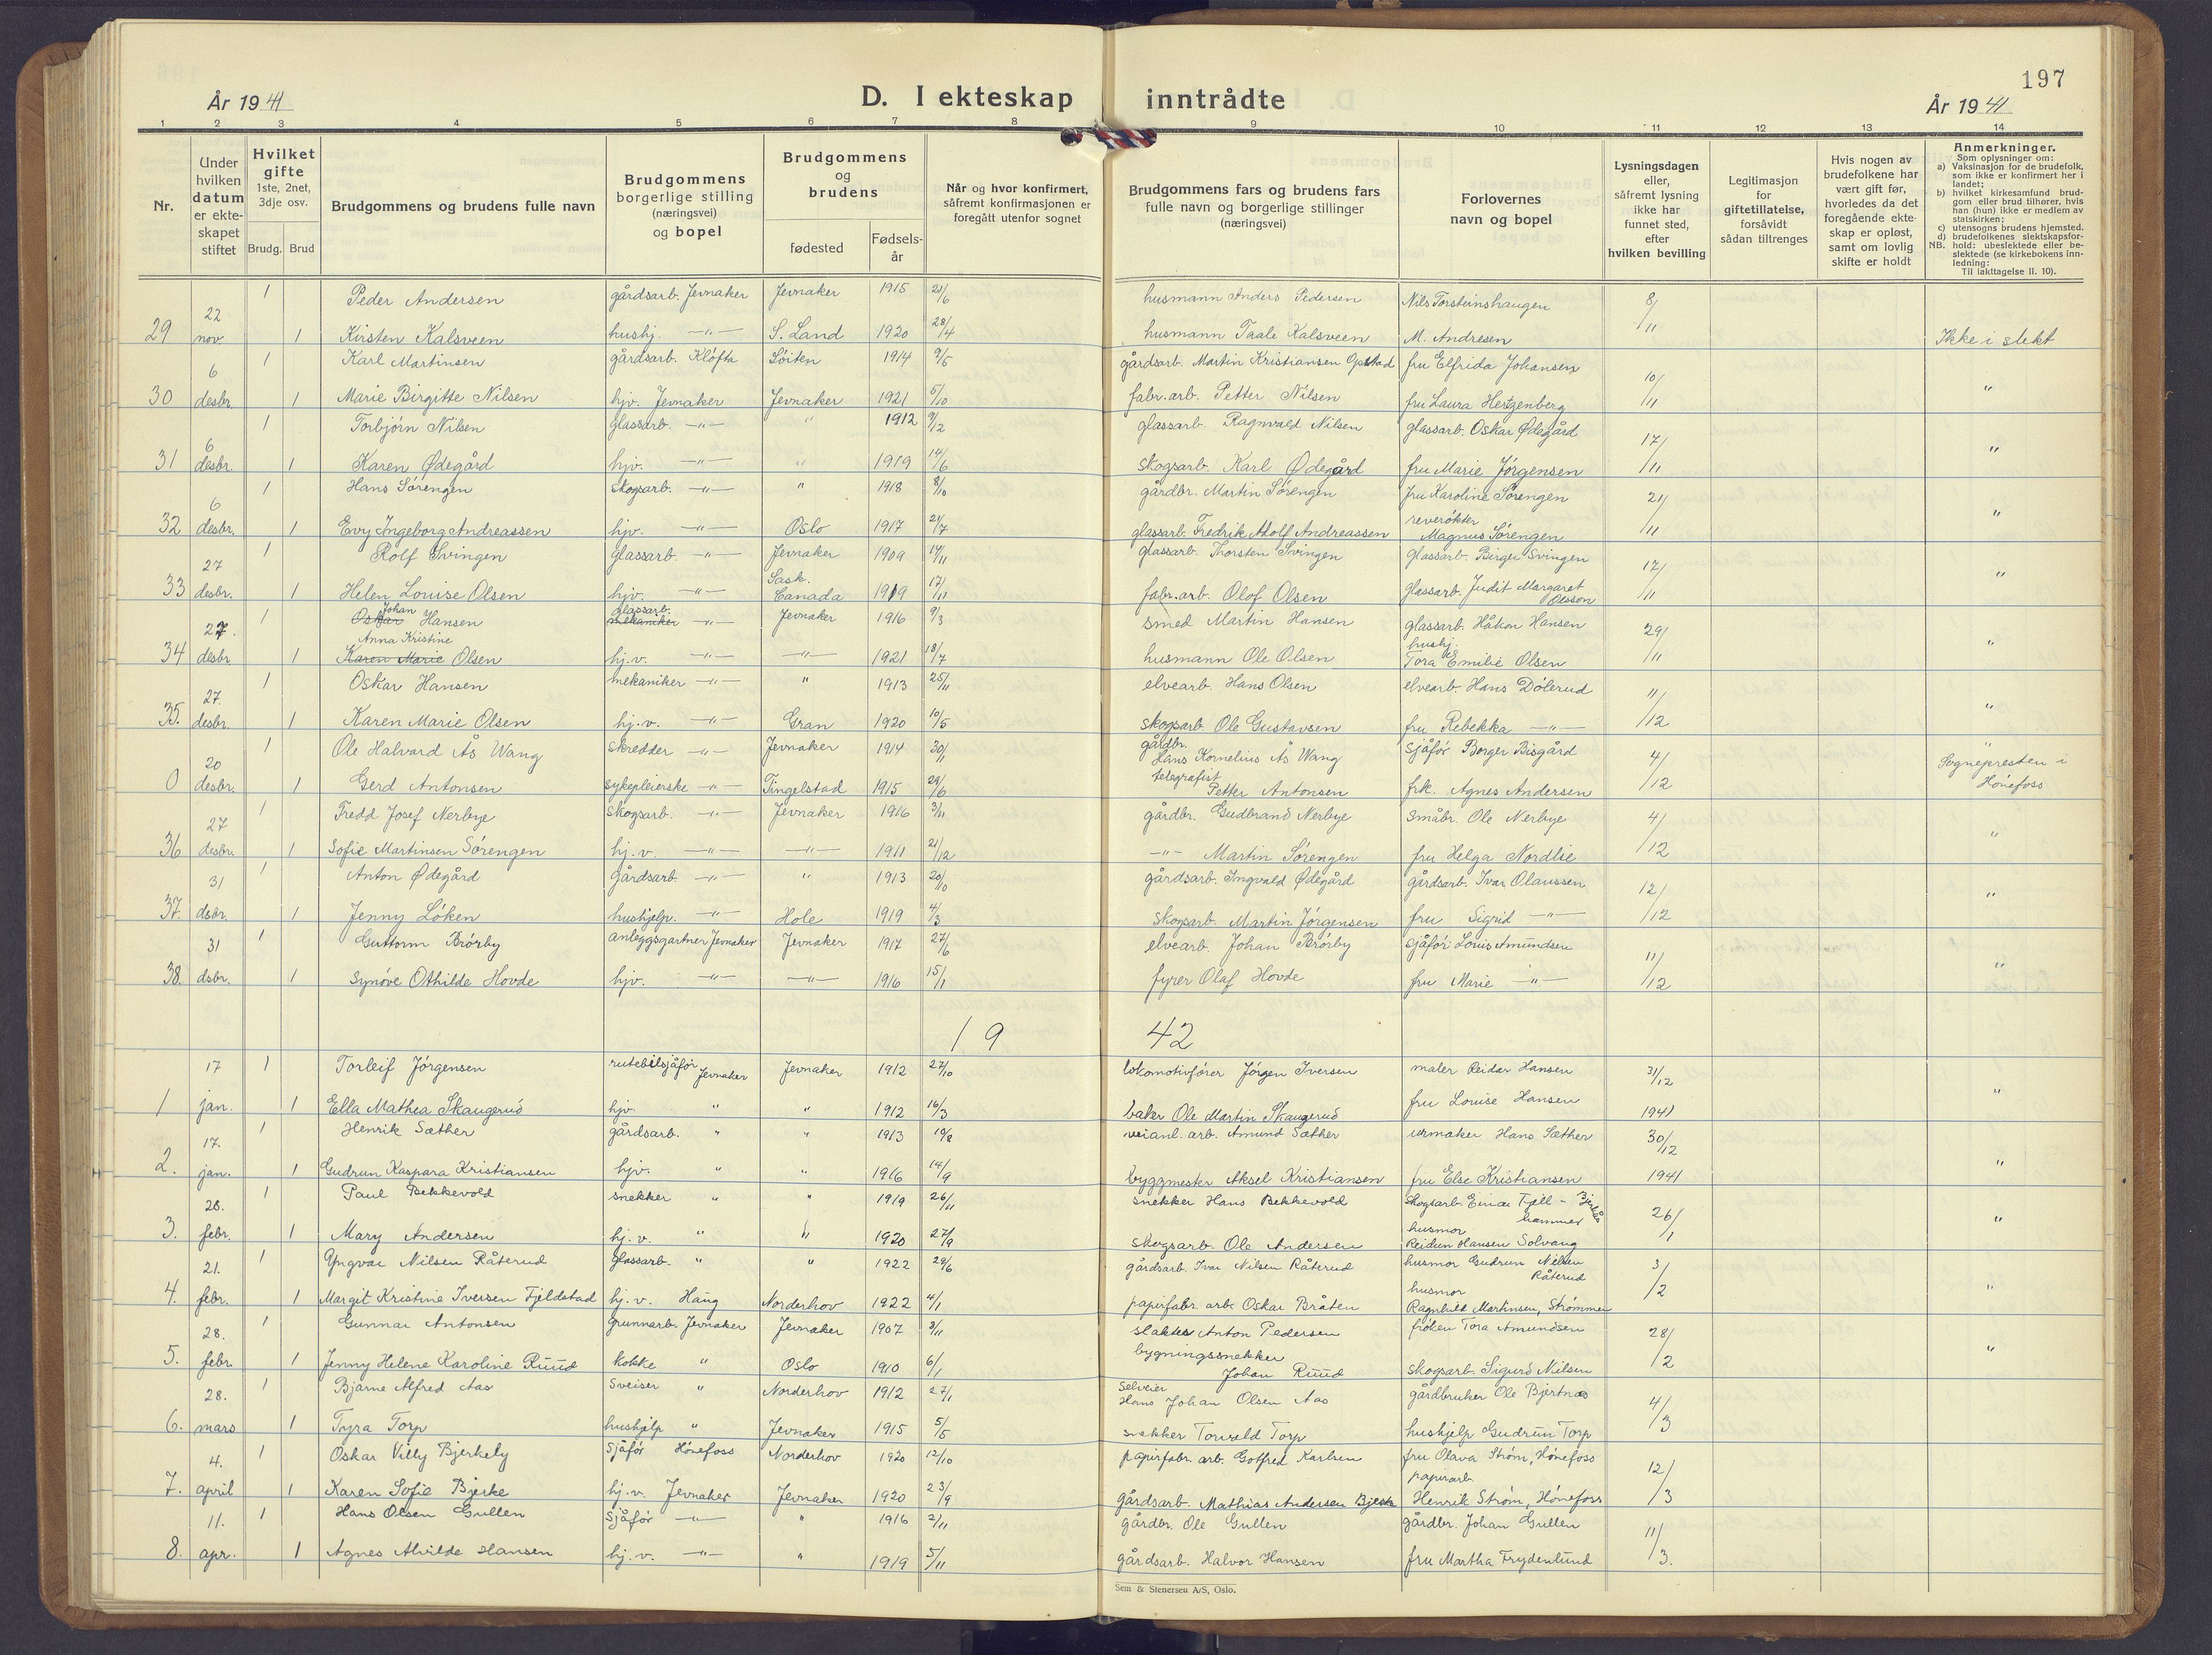 197
År 1941
D. I ekteskap inntrådte
År 1941
1 2 3 4 5 6 7 8 9 10 11 12 13 14
Nr.
Under hvilken datum er ekteskapet stiftet
Hvilket gifte 1ste, 2net, 3dje osv.
Brudg. Brud
Brudgommens og brudens fulle navn
Brudgommens borgerlige stilling (næringsvei) og bopel
Brudgommens og brudens
fødested
Fødselsår
Når og hvor konfirmert, såfremt konfirmasjonen er foregått utenfor sognet
Brudgommens fars og brudens fars fulle navn og borgerlige stillinger (næringsvei)
Forlovernes navn og bopel
Lysningsdagen eller, såfremt lysning ikke har funnet sted, efter hvilken bevilling
Legitimasjon for giftetillatelse, forsåvidt sådan tiltrenges
Hvis nogen av brudefolkene har vært gift før, hvorledes da det foregående ekteskap er opløst, samt om lovlig skifte er holdt
Anmerkninger.
Som oplysninger om:
a) Vaksinasjon for de brudefolk, som ikke er konfirmert her i landet;
b) hvilket kirkesamfund brudgom eller brud tilhører, hvis han (hun) ikke er medlem av statskirken;
c) utensogns brudens hjemsted.
d) brudefolkenes slektskapsforhold: ubeslektede eller beslektede (se kirkebokens innledning:
NB. Til iakttagelse II. 10).
22 1 Peder Andersen gårdsarb. Jevnaker Jevnaker 1915 21/6 husmann Anders Pedersen Nils Torsteinshaugen 8/11
29 nov 1 Kirsten Kalsveen hushj. —"— S. Land 1920 28/4 husmann Taale Kalsveen M. Andresen Ikke i slekt
6 1 Karl Martinsen gårdsarb. Kløfta Søiten 1914 9/5 gårdsarb. Martin Kristiansen Opstad fru Elfrida Johansen 10/11
30 desbr. 1 Marie Birgitte Nilsen hjv. Jevnaker Jevnaker 1921 5/10 fabr.arb. Petter Nilsen fru Laura Hertzenberg "
6 1 Torbjørn Nilsen glassarb. —"— " 1912 9/12 glassarb. Ragnvald Nilsen glassarb. Oskar Ødegård 17/11
31 desbr. 1 Karen Ødegård hjv. —"— " 1919 14/6 skogsarb. Karl Ødegård fru Marie Jørgensen "
6 1 Hans Sørengen skogsarb. —"— " 1918 8/10 gårdbr. Martin Sørengen fru Karoline Sørengen 21/11
32 desbr. 1 Evy Ingeborg Andreassen hjv. —"— Oslo 1917 21/7 glassarb. Fredrik Adolf Andreassen reverøkter Magnus Sørengen "
27 1 Rolf Svingen glassarb. —"— Jevnaker 1909 14/11 glassarb. Thorsten Svingen glassarb. Birger Svingen 17/11
33 desbr. 1 Helen Louise Olsen hjv. —"— Sask. Canada 1919 17/11 fabr.arb. Olof Olsen glassarb. Judit Margaret Olsson "
27. 1 Oskar Johan Hansen mekaniker glassarb. —"— Jevnaker 1916 9/3 smed Martin Hansen glassarb. Håkon Hansen 29/11
34 desbr 1 Karen Marie Anna Kristine Olsen hj.v. —"— —"— 1921 18/7 husmann Ole Olsen hushj. Tora Emilie Olsen "
27. 1 Oskar Hansen mekaniker —"— " 1913 25/11 elvearb. Hans Olsen elvearb. Hans Dølerud 11/12
35. desbr. 1 Karen Marie Olsen hj.v. —"— Gran 1920 10/5 skogsarb. Ole Gustavsen fru Rebekka —"— "
20 1 Ole Halvard Ås Wang skredder —"— Jevnaker 1914 30/11 gårdbr. Hans Kornelius Ås Wang sjåfør Borger Bisgård 4/12 "
0 desbr. 1 Gerd Antonsen sykepleierske —"— Tingelstad 1915 29/6 telegrafist Petter Antonsen frk. Agnes Andersen Sognepresten i Hønefoss
27 1 Fredd Josef Nerbye skogsarb. —"— Jevnaker 1916 3/11 gårdbr. Gudbrand Nerbye småbr. Ole Nerbye 4/12
36 desbr. 1 Sofie Martinsen Sørengen hj.v. —"— —"— 1911 21/12 —"— Martin Sørengen fru Helga Nordlie "
31 1 Anton Ødegård gårdsarb. —"— " 1913 20/10 gårdsarb. Ingvald Ødegård gårdsarb. Ivar Olaussen 12/12
37. dsbr. 1 Jenny Løken hushjelp. —"— Hole 1919 4/3 skogsarb. Martin Jørgensen fru Sigrid —"— "
31 1 Guttorm Brørby anleggsgartner Jevnaker Jevnaker 1917 27/6 elvearb. Johan Brørby sjåfør Louis Amundsen 11/12
38. dsbr. 1 Synøve Othilde Hovde hjv. —"— —"— 1916 15/1 fyrer Olaf Hovde fru Marie —"— "
19 42
17 1 Torleif Jørgensen rutebilsjåfør Jevnaker Jevnaker 1912 27/10 lokomotivfører Jörgen Iversen maler Reidar Hansen 31/12 1941
1 jan. 1 Ella Mathea Skaugerud hjv. " " 1912 16/3 baker Ole Martin Skaugerud fru Louise Hansen "
17. 1 Henrik Sæther gårdsarb. " " 1913 19/8 veianl. arb. Amund Sæther urmaker Hans Sæther 30/12 1941
2. jan. 1 Gudrun Kaspara Kristiansen hjv. " " 1916 14/9 byggmester Aksel Kristiansen fru Else Kristiansen "
28. 1 Paul Bekkevold snekker " " 1919 26/11 snekker Hans Bekkevold skogsarb. Einar Fjell - hammer 26/1
3. febr. 1 Mary Andersen hj.v. " " 1920 27/9 skogsarb. Ole Andersen husmor Reidun Hansen Solvang "
21. 1 Yngvar Nilsen Råterud glassarb. " " 1922 29/6 gårdsarb. Ivar Nilsen Råterud husmor Gudrun Nilsen Råterud 3/2
4. febr. 1 Margit Kristine Iversen Fjeldstad hj.v. Haug Norderhov 1922 4/1 papirfabr. arb. Oskar Bråten husmor Ragnhild Martinsen, Strømmen "
28. 1 Gunnar Antonsen grunnarb. Jevnaker Jevnaker 1907 3/11 slakter Anton Pedersen frøken Tora Amundsen 28/2
5. febr. 1 Jenny Helene Karoline Ruud kokke " Oslo 1910 6/1 bygningssnekker Johan Ruud skogsarb. Sigurd Nilsen "
28. 1 Bjarne Alfred Aas sveiser " Norderhov 1912 27/1 selveier Hans Johan Olsen Aas gårdbruker Ole Bjertnæs 4/3
6. mars 1 Tyra Torp hushjelp " Jevnaker 1915 5/5 snekker Torvald Torp hushjelp Gudrun Torp
4. 1 Oskar Villy Bjerkely sjåfør Hønefoss Norderhov 1920 12/10 papirfabr. arb. Gotfred Karlsen fru Olava Strøm, Hønefoss 12/3
7. april 1 Karen Sofie Bjerke hj.v. Jevnaker Jevnaker 1920 23/9 gårdsarb. Mathias Andersen Bjerke papirarb. Henrik Strøm, Hønefoss
11. 1 Hans Olsen Gullen sjåfør —"— " 1916 2/11 gårdbr. Ole Gullen gårdbr. Johan Gullen 11/3.
8. apr. 1 Agnes Alvilde Hansen hj.v. —"— " 1919 5/11 gårdsarb. Halvor Hansen fru Martha Frydenlund
Sem & Stenersen A/S, Oslo.